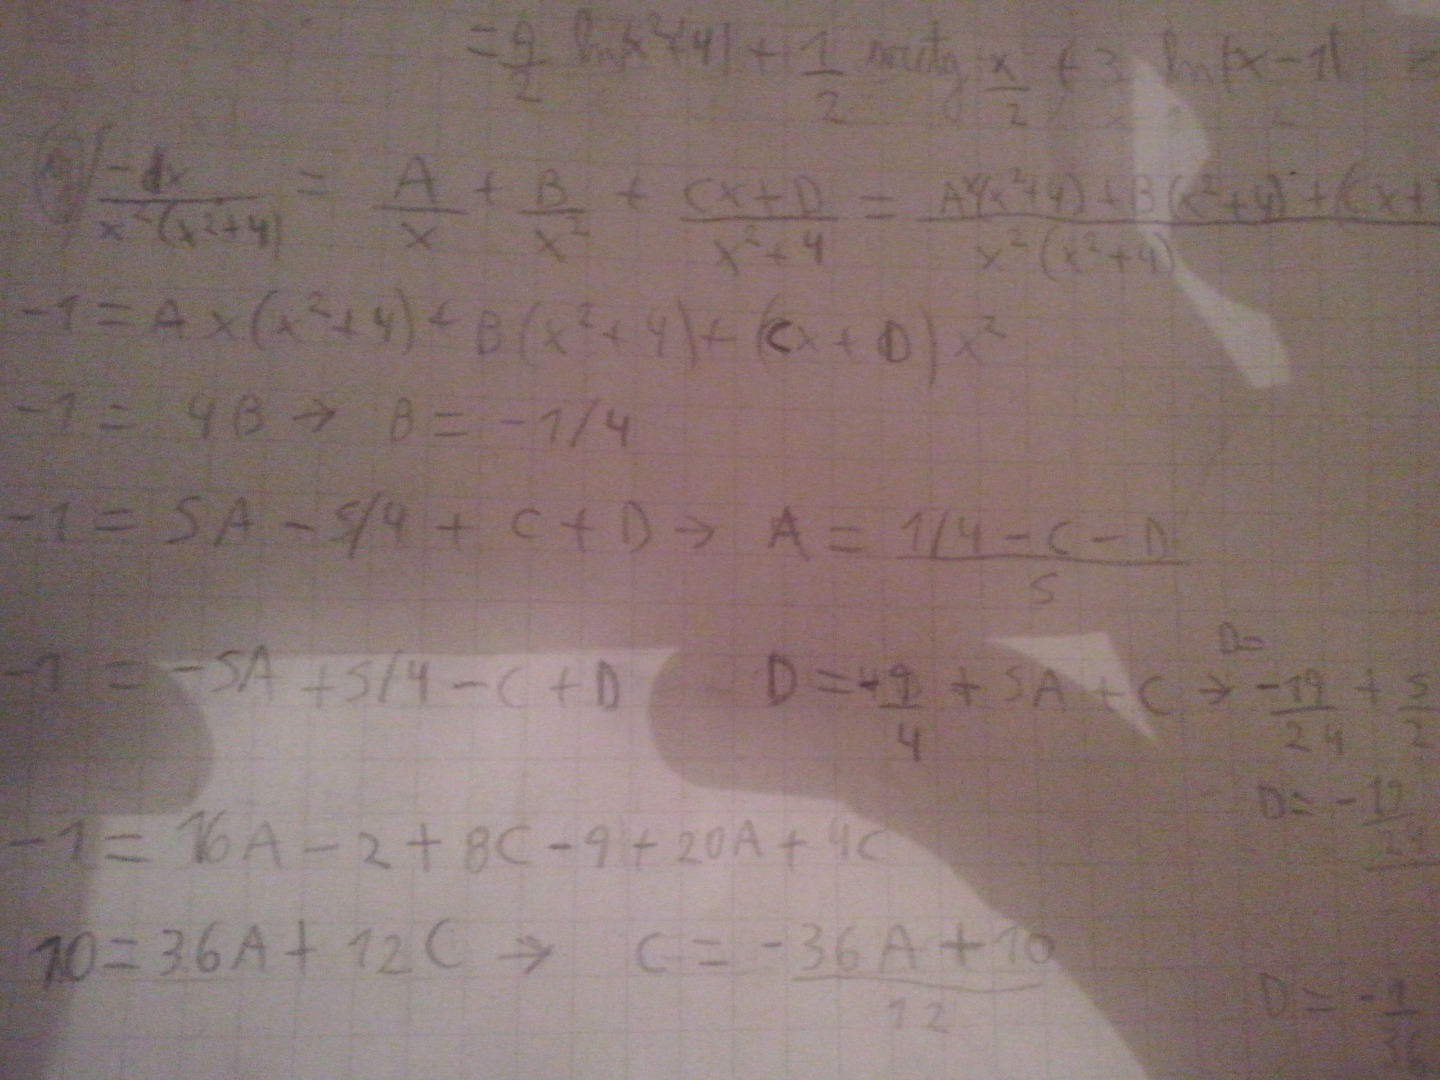 = 9/2 ln|x²+4| + 1/2 arctg x/2 + 3 ln|x-1| =
∫ -dx / x²(x²+4) = A/x + B/x² + Cx+D / x²+4 = Ax(x²+4) + B(x²+4) + (Cx+ / x²(x²+4)
-1 = Ax(x²+4) + B(x²+4) + (Cx+D)x²
-1 = 4B → B = -1/4
-1 = 5A - 5/4 + C + D → A = 1/4 - C - D / 5
-1 = -5A + 5/4 - C + D D = -9/4 + 5A + C → D= -19/24 + 5/2
D = -19/24
-1 = 16A - 2 + 8C - 9 + 20A + 4C
10 = 36A + 12C → C = -36A + 10 / 12
D = -1/36